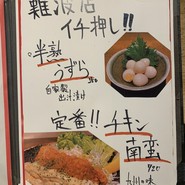 難波店
イチ押し!!
半熟
うずら
自家製
出汁漬け
定番!! チキン
南蛮
九州の味